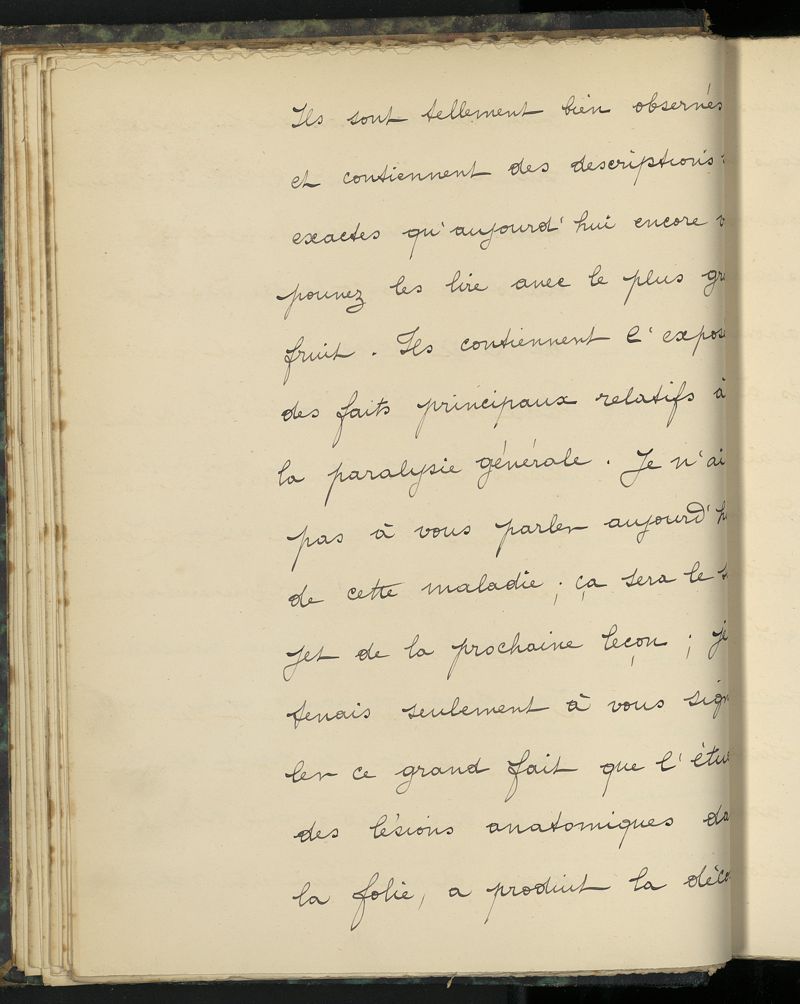 Ils sont tellement bien observés
et contiennent des descriptions
exactes qu'aujourd'hui encore v
pouvez les lire avec le plus gra
fruit. Ils contiennent l'exposé
des faits principaux relatifs à
la paralysie générale. Je n'ai
pas à vous parler aujourd'h
de cette maladie; ça sera le s
jet de la prochaine leçon; je
tenais seulement à vous sign
ler ce grand fait que l'étu
des lésions anatomiques da
la folie, a produit la déco